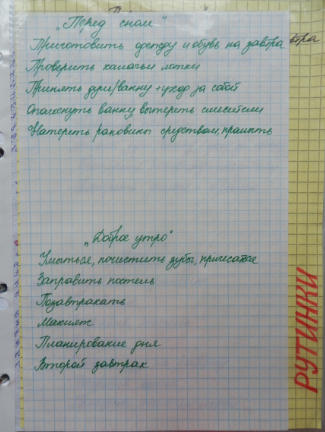 „Перед сном"
Приготовить одежду и обувь на завтра
Проверить кошачьи лотки
Принять душ/ванну + уход за собой
Ополоснуть ванну, вытереть смесители
Натереть раковину средством, промыть
„Доброе утро"
Умыться, почистить зубы, причесаться
Заправить постель
Позавтракать
Макияж
Планирование дня
Второй завтрак
РУТИНКИ